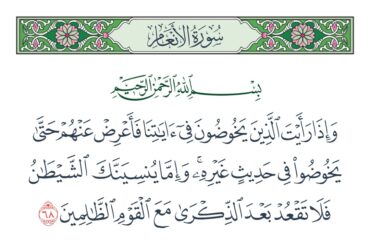 سُورَةُ الأَنْعَامِ
بِسْمِ اللَّهِ الرَّحْمَٰنِ الرَّحِيمِ
وَإِذَا رَأَيْتَ ٱلَّذِينَ يَخُوضُونَ فِىٓ ءَايَٰتِنَا فَأَعْرِضْ عَنْهُمْ حَتَّىٰ
يَخُوضُوا۟ فِى حَدِيثٍ غَيْرِهِۦ ۚ وَإِمَّا يُنسِيَنَّكَ ٱلشَّيْطَٰنُ
فَلَا تَقْعُدْ بَعْدَ ٱلذِّكْرَىٰ مَعَ ٱلْقَوْمِ ٱلظَّٰلِمِينَ ٦٨